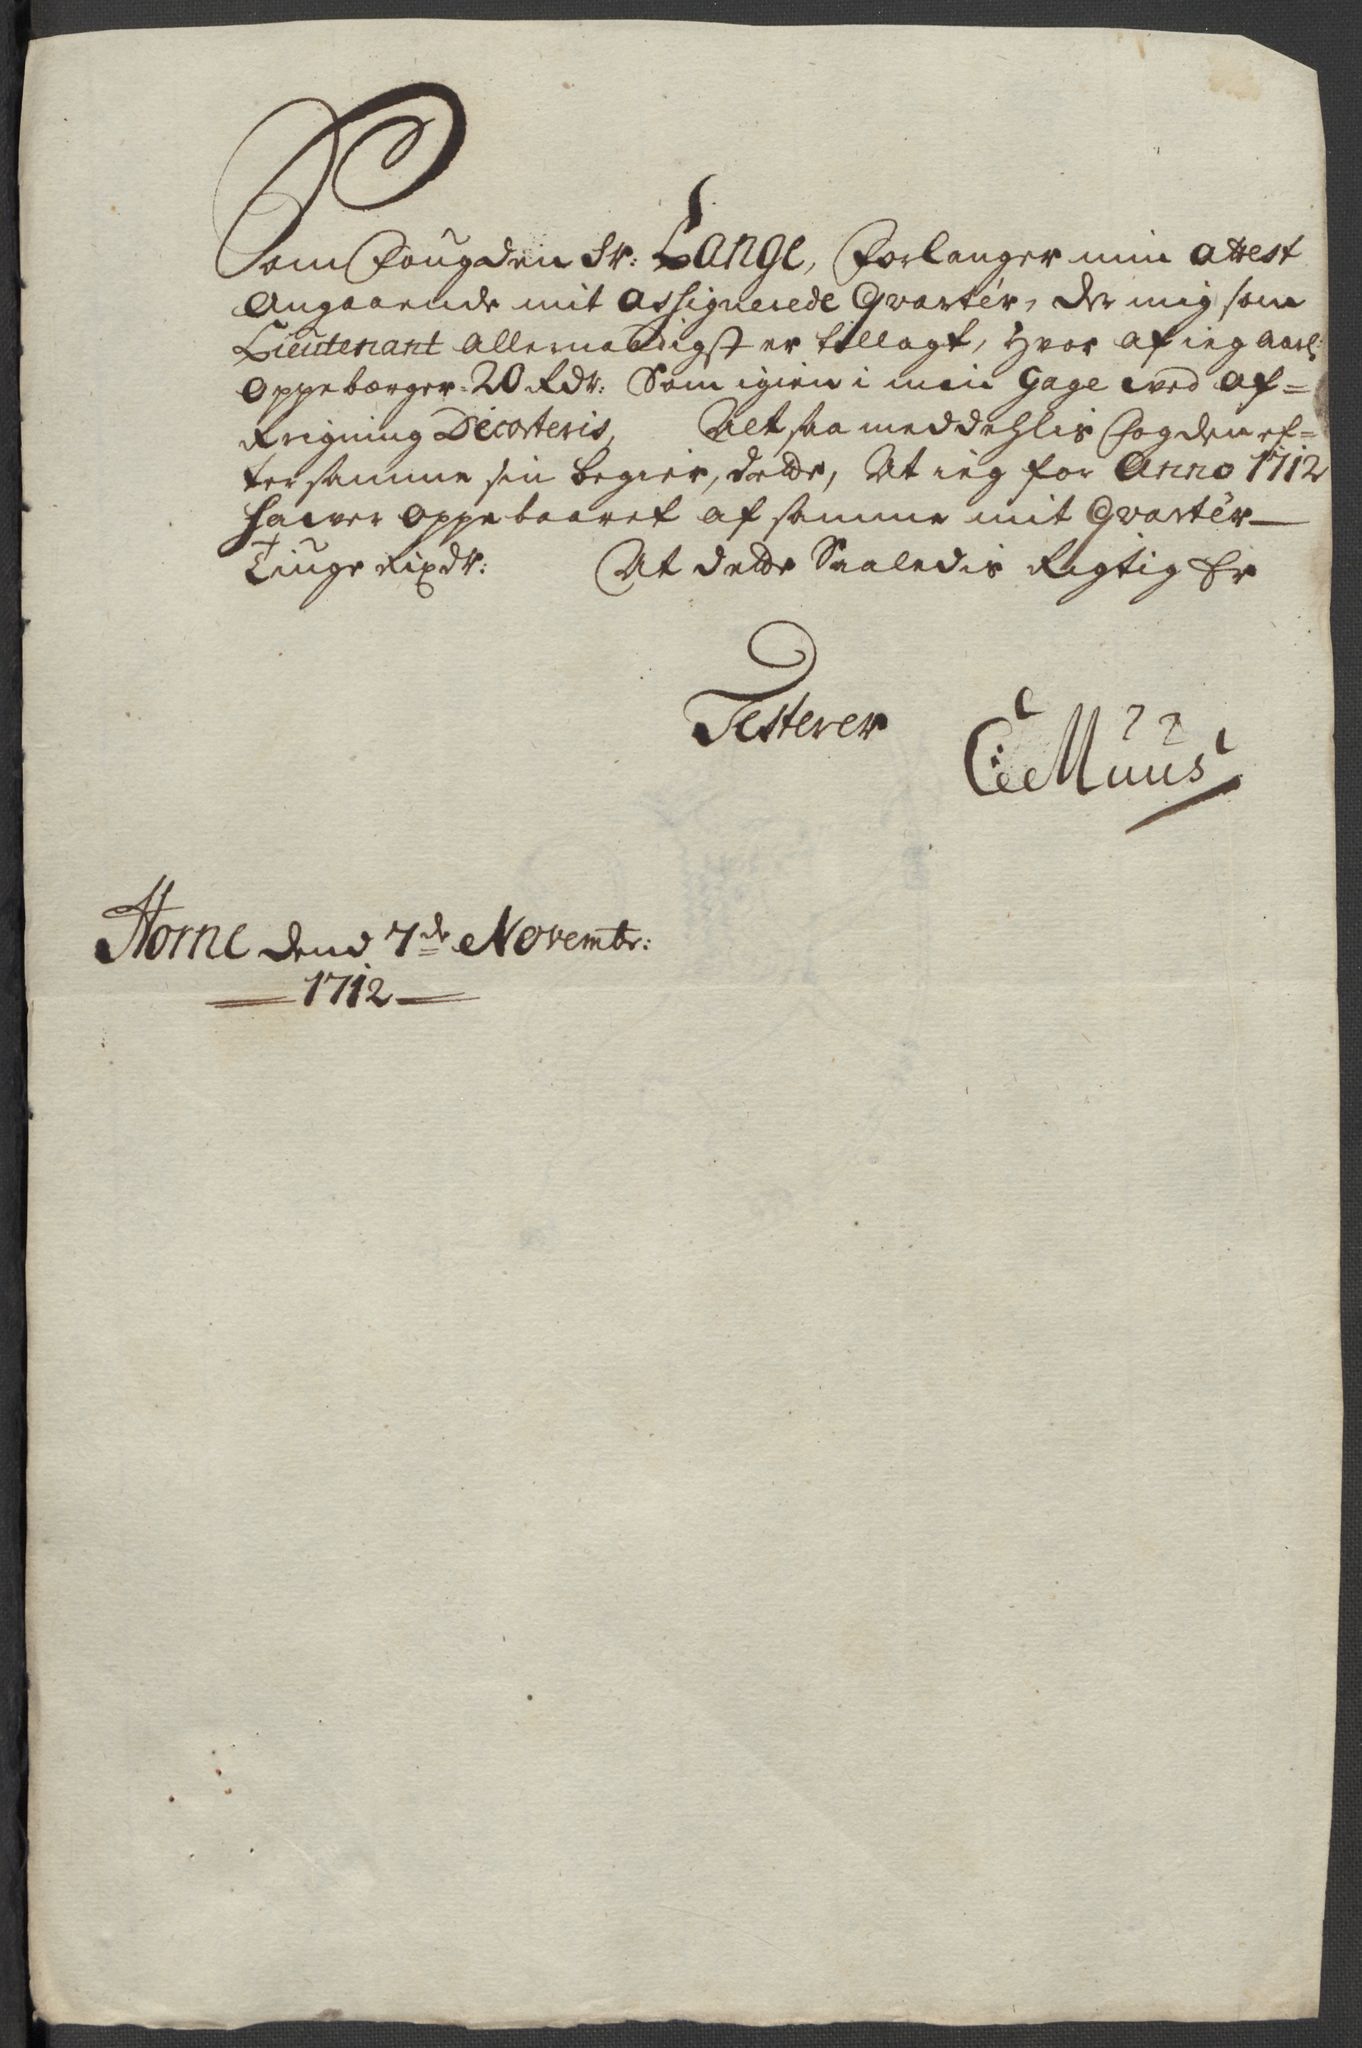 Som Fougden Sr: Lange, Forlanger min attest
Angaaende mit assignerede Qvarteer, der mig som
Lieutenant allernaadigst er tillagt, Hvor af ieg aarl:
oppebærger 20 Rdr: Som igien i min Gage ved af=
Reigning Decorteris, Alt saa meddehlis Fogden ef=
ter samme sin begier, dette, At ieg for Anno 1712
hawer oppebaaret af samme mit Qvarteer
Tiuge Rixdr: At dette Saaledis Rigtig Er
Testerer
Muus
Horne dend 7de Novembr:
1712